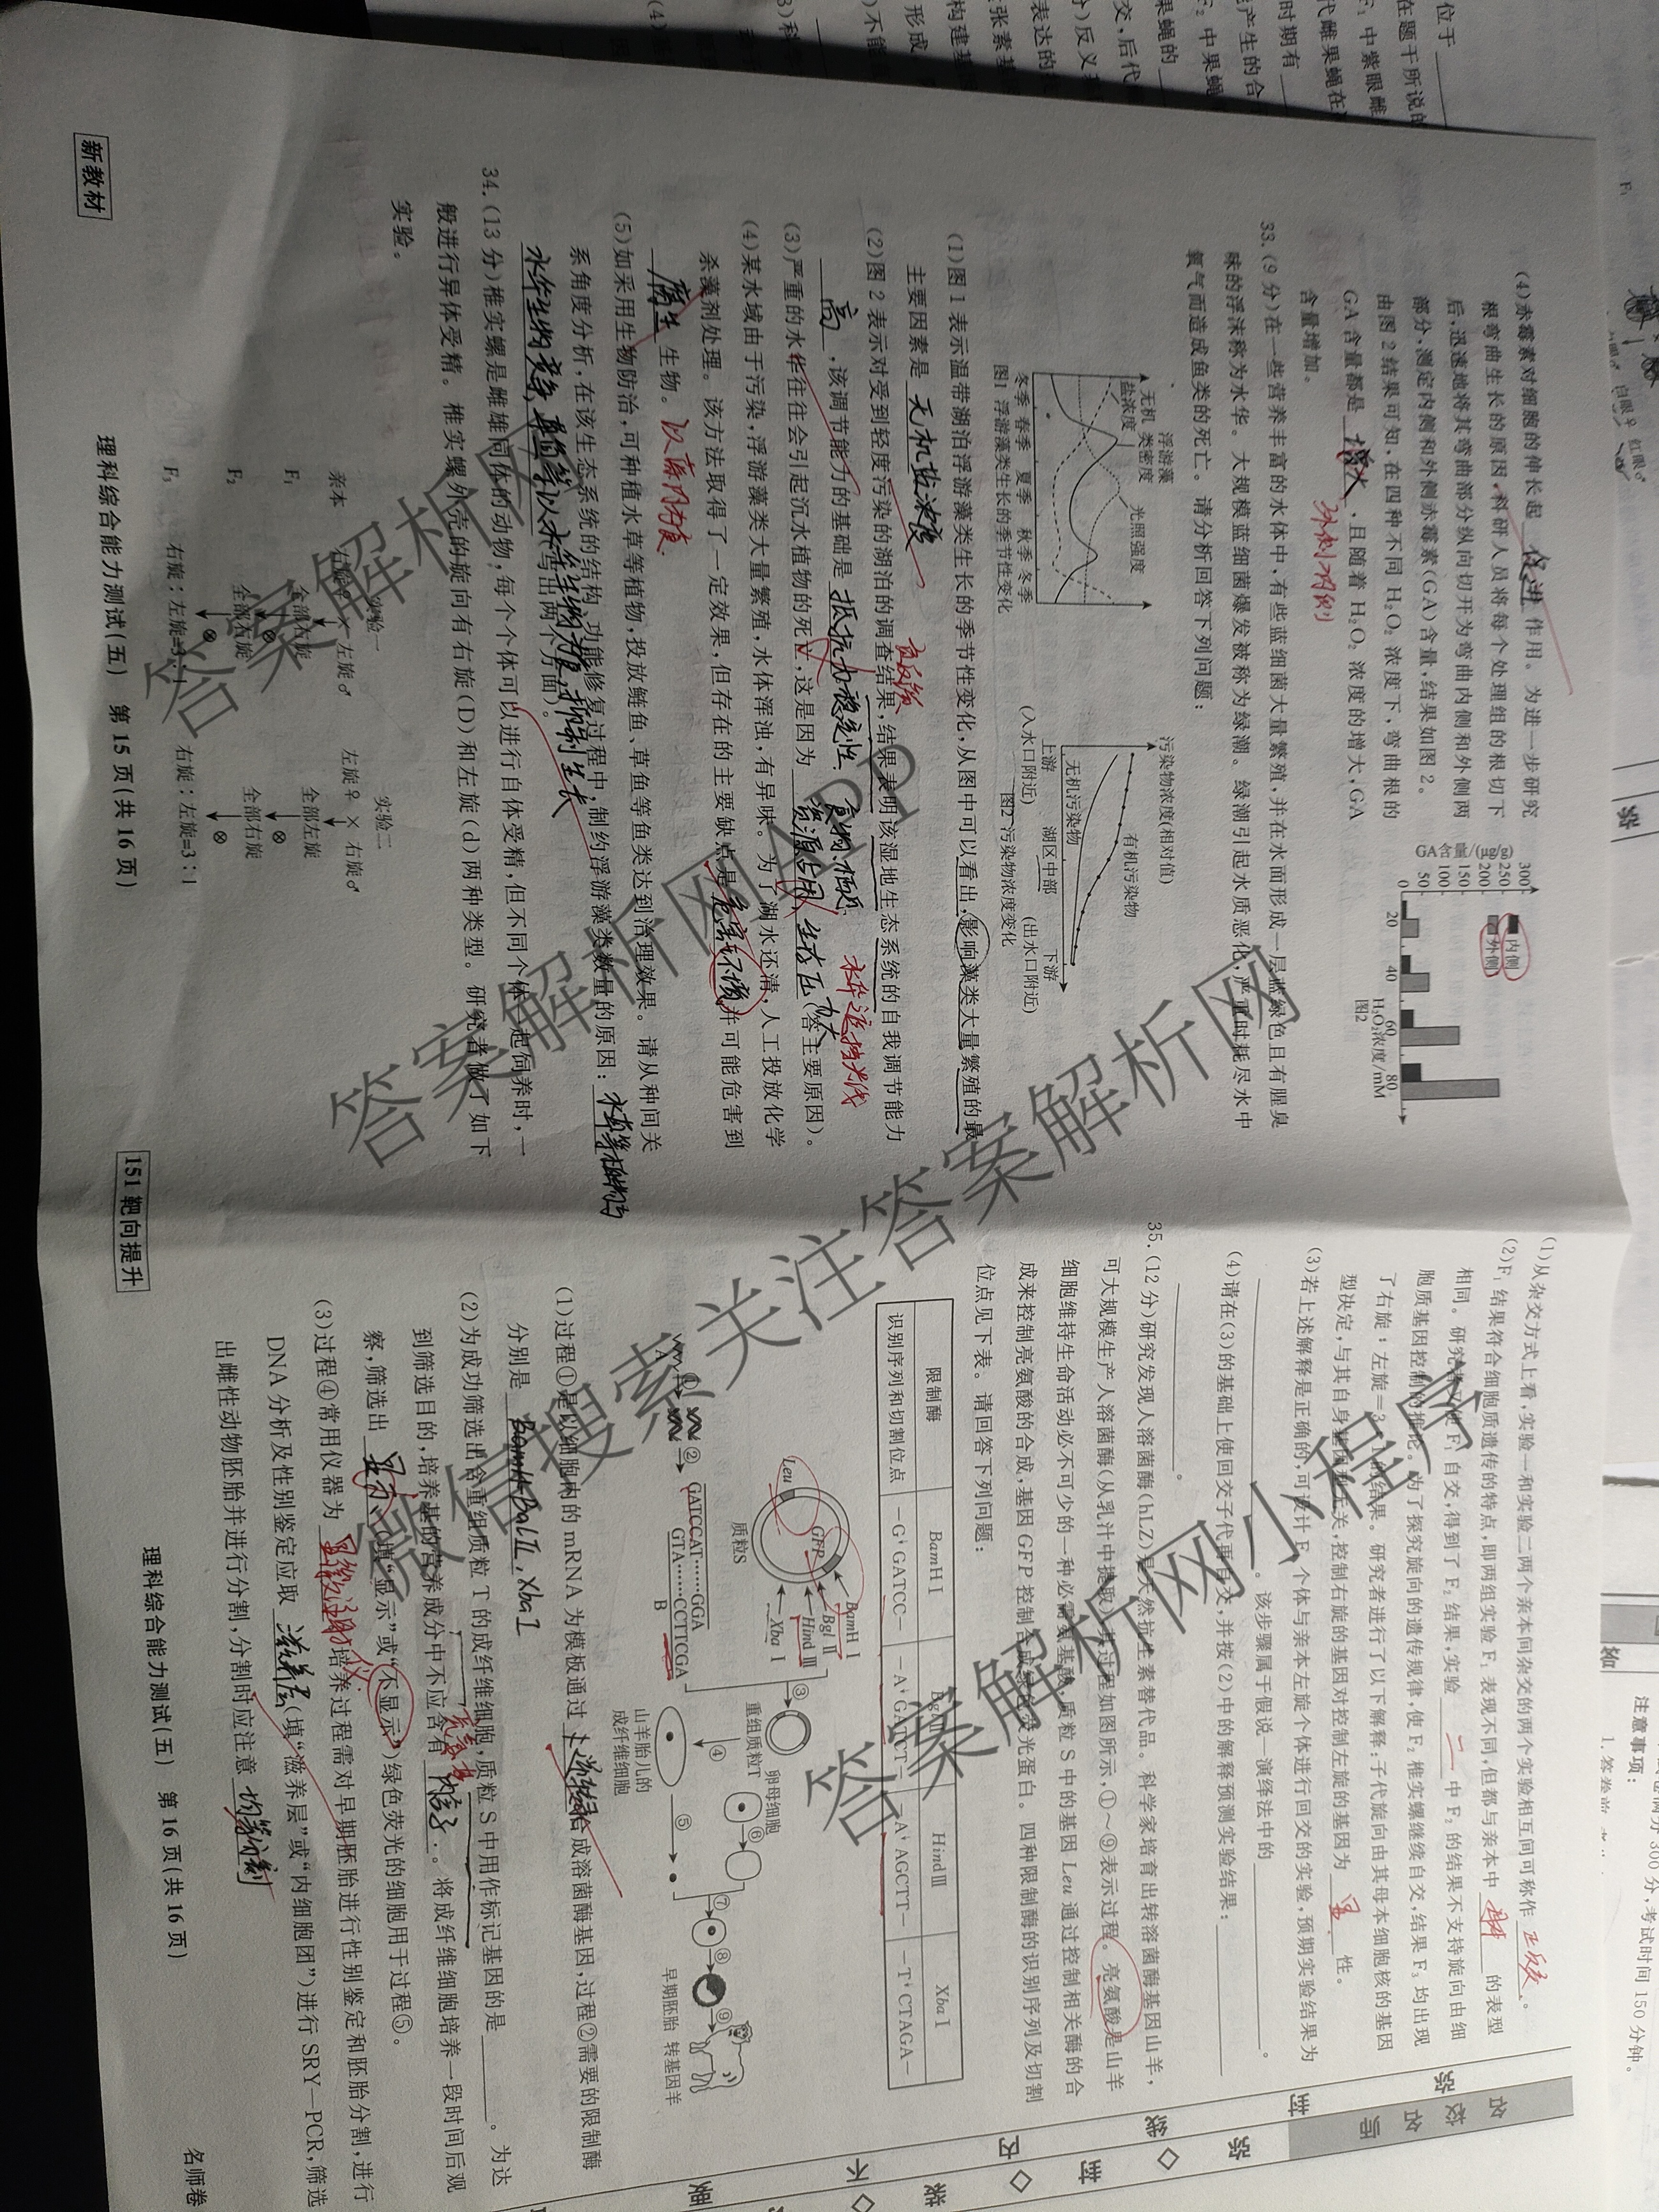 (4)赤霉素对细胞的伸长起 促进 作用。为进一步研究
根弯曲生长的原因,科研人员将每个处理组的根切下
后,迅速地将其弯曲部分纵向切开为弯曲内侧和外侧两
部分,测定内侧和外侧赤霉素(GA)含量,结果如图 2。
由图 2 结果可知,在四种不同 H₂O₂ 浓度下,弯曲根的
GA 含量都是 ,且随着 H₂O₂ 浓度的增大,GA
含量增加。
GA含量/(μg/g)
300
250
200
150
100
50
0
内侧
外侧
20 40 60 80
H₂O₂浓度/mM
图2
33.(9 分)在一些营养丰富的水体中,有些蓝细菌大量繁殖,并在水面形成一层蓝绿色且有腥臭
味的浮沫称为水华。大规模蓝细菌爆发被称为绿潮。绿潮引起水质恶化,严重时耗尽水中
氧气而造成鱼类的死亡。请分析回答下列问题:
无机盐浓度
浮游藻类密度
光照强度
冬季 春季 夏季 秋季 冬季
图1 浮游藻类生长的季节性变化
污染物浓度(相对值)
有机污染物
无机污染物
上游 湖区中部 下游
(入水口附近) (出水口附近)
图2 污染物浓度变化
(1)图 1 表示温带湖泊浮游藻类生长的季节性变化,从图中可以看出,影响藻类大量繁殖的最
主要因素是 无机盐浓度
(2)图 2 表示对受到轻度污染的湖泊的调查结果,结果表明该湿地生态系统的自我调节能力
高 ,该调节能力的基础是 抵抗力稳定性
负反馈
(3)严重的水华往往会引起沉水植物的死亡,这是因为 (答主要原因)。
水华遮挡光线
(4)某水域由于污染,浮游藻类大量繁殖,水体浑浊,有异味。为了湖水还清,人工投放化学
杀藻剂处理。该方法取得了一定效果,但存在的主要缺点是 并可能危害到
腐生 生物。
(5)如采用生物防治,可种植水草等植物,投放鲢鱼、草鱼等鱼类达到治理效果。请从种间关
系角度分析,在该生态系统的结构、功能修复过程中,制约浮游藻类数量的原因:
(写出两个方面)。
34.(13 分)椎实螺是雌雄同体的动物,每个个体可以进行自体受精,但不同个体一起饲养时,一
般进行异体受精。椎实螺外壳的旋向有右旋(D)和左旋(d)两种类型。研究者做了如下
实验。
实验一 实验二
亲本 右旋♀ × 左旋♂ 左旋♀ × 右旋♂
F₁ 全部右旋 全部左旋
F₂ 全部右旋 全部右旋
F₃ 右旋:左旋=3:1 右旋:左旋=3:1
新教材
理科综合能力测试(五) 第 15 页(共 16 页)
151 靶向提升
(1)从杂交方式上看,实验一和实验二两个亲本间杂交的两个实验相互间可称作 正反交 。
(2)F₁ 结果符合细胞质遗传的特点,即两组实验 F₁ 表现不同,但都与亲本中 的表型
相同。研究者又使 F₁ 自交,得到了 F₂ 结果,实验 二 中 F₂ 的结果不支持旋向由细
胞质基因控制的推论。为了探究旋向的遗传规律,使 F₂ 椎实螺继续自交,结果 F₃ 均出现
了右旋:左旋=3:1 的结果。研究者进行了以下解释:子代旋向由其母本细胞核的基因
型决定,与其自身基因型无关,控制右旋的基因对控制左旋的基因为 显 性。
(3)若上述解释是正确的,可设计 F₁ 个体与亲本左旋个体进行回交的实验,预期实验结果为
。该步骤属于假说—演绎法中的 。
(4)请在(3)的基础上使回交子代再自交,并按(2)中的解释预测实验结果:
。
35.(12 分)研究发现人溶菌酶(hLZ)是天然抗生素替代品。科学家培育出转溶菌酶基因山羊,
可大规模生产人溶菌酶(从乳汁中提取),其过程如图所示,①~⑨表示过程。亮氨酸是山羊
细胞维持生命活动必不可少的一种必需氨基酸,质粒 S 中的基因 Leu 通过控制相关酶的合
成来控制亮氨酸的合成,基因 GFP 控制合成绿色荧光蛋白。四种限制酶的识别序列及切割
位点见下表。请回答下列问题:
限制酶 BamH I Bgl II Hind III Xba I
识别序列和切割位点 —G↓GATCC— —A↓GATCT— —A↓AGCTT— —T↓CTAGA—
Leu
GFP
BamH I
Bgl II
Hind III
Xba I
质粒S
A
①
②
GATCCAT……GGA
GTA……CCTTCGA
B
③
重组质粒T
④
山羊胎儿的
成纤维细胞
⑤
卵母细胞
⑥
⑦
⑧
⑨
早期胚胎 转基因羊
(1)过程①是以细胞内的 mRNA 为模板通过 合成溶菌酶基因,过程②需要的限制酶
分别是
(2)为成功筛选出含重组质粒 T 的成纤维细胞,质粒 S 中用作标记基因的是 。为达
到筛选目的,培养基的营养成分中不应含有 。将成纤维细胞培养一段时间后观
察,筛选出 显示 (填“显示”或“不显示”)绿色荧光的细胞用于过程⑤。
(3)过程④常用仪器为 培养过程需对早期胚胎进行性别鉴定和胚胎分割,进行
DNA 分析及性别鉴定应取 滋养层 (填“滋养层”或“内细胞团”)进行 SRY—PCR,筛选
出雌性动物胚胎并进行分割,分割时应注意 均等分割
理科综合能力测试(五) 第 16 页(共 16 页)
名师卷
注意事项:
考试时间 150 分钟。
答案解析网
答案解析网APP
微信搜索关注答案解析网
答案解析网小程序